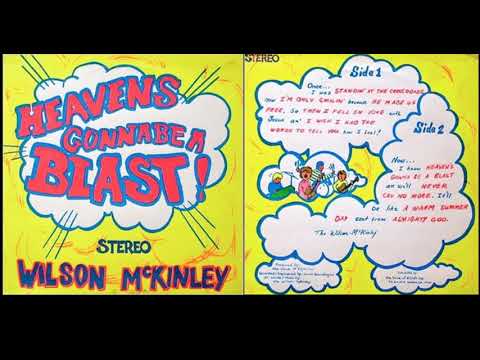 HEAVENS
GONNA BE A
BLAST!
STEREO
WILSON McKINLEY
STEREO
Side 1
Once...
I was STANDIN' AT THE CROSSROADS
now I'M ONLY SMILIN' because HE MADE US
FREE, So THEN I FELL IN LOVE with
Jesus an' I WISH I HAD THE
WORDS TO TELL YOU how I feel!
Side 2
Now...
I know HEAVEN'S
GONNA BE A BLAST
an we'll NEVER
CRY NO MORE. It'll
be like A WARM SUMMER
DAY sent from ALMIGHTY GOD.
The Wilson McKinley